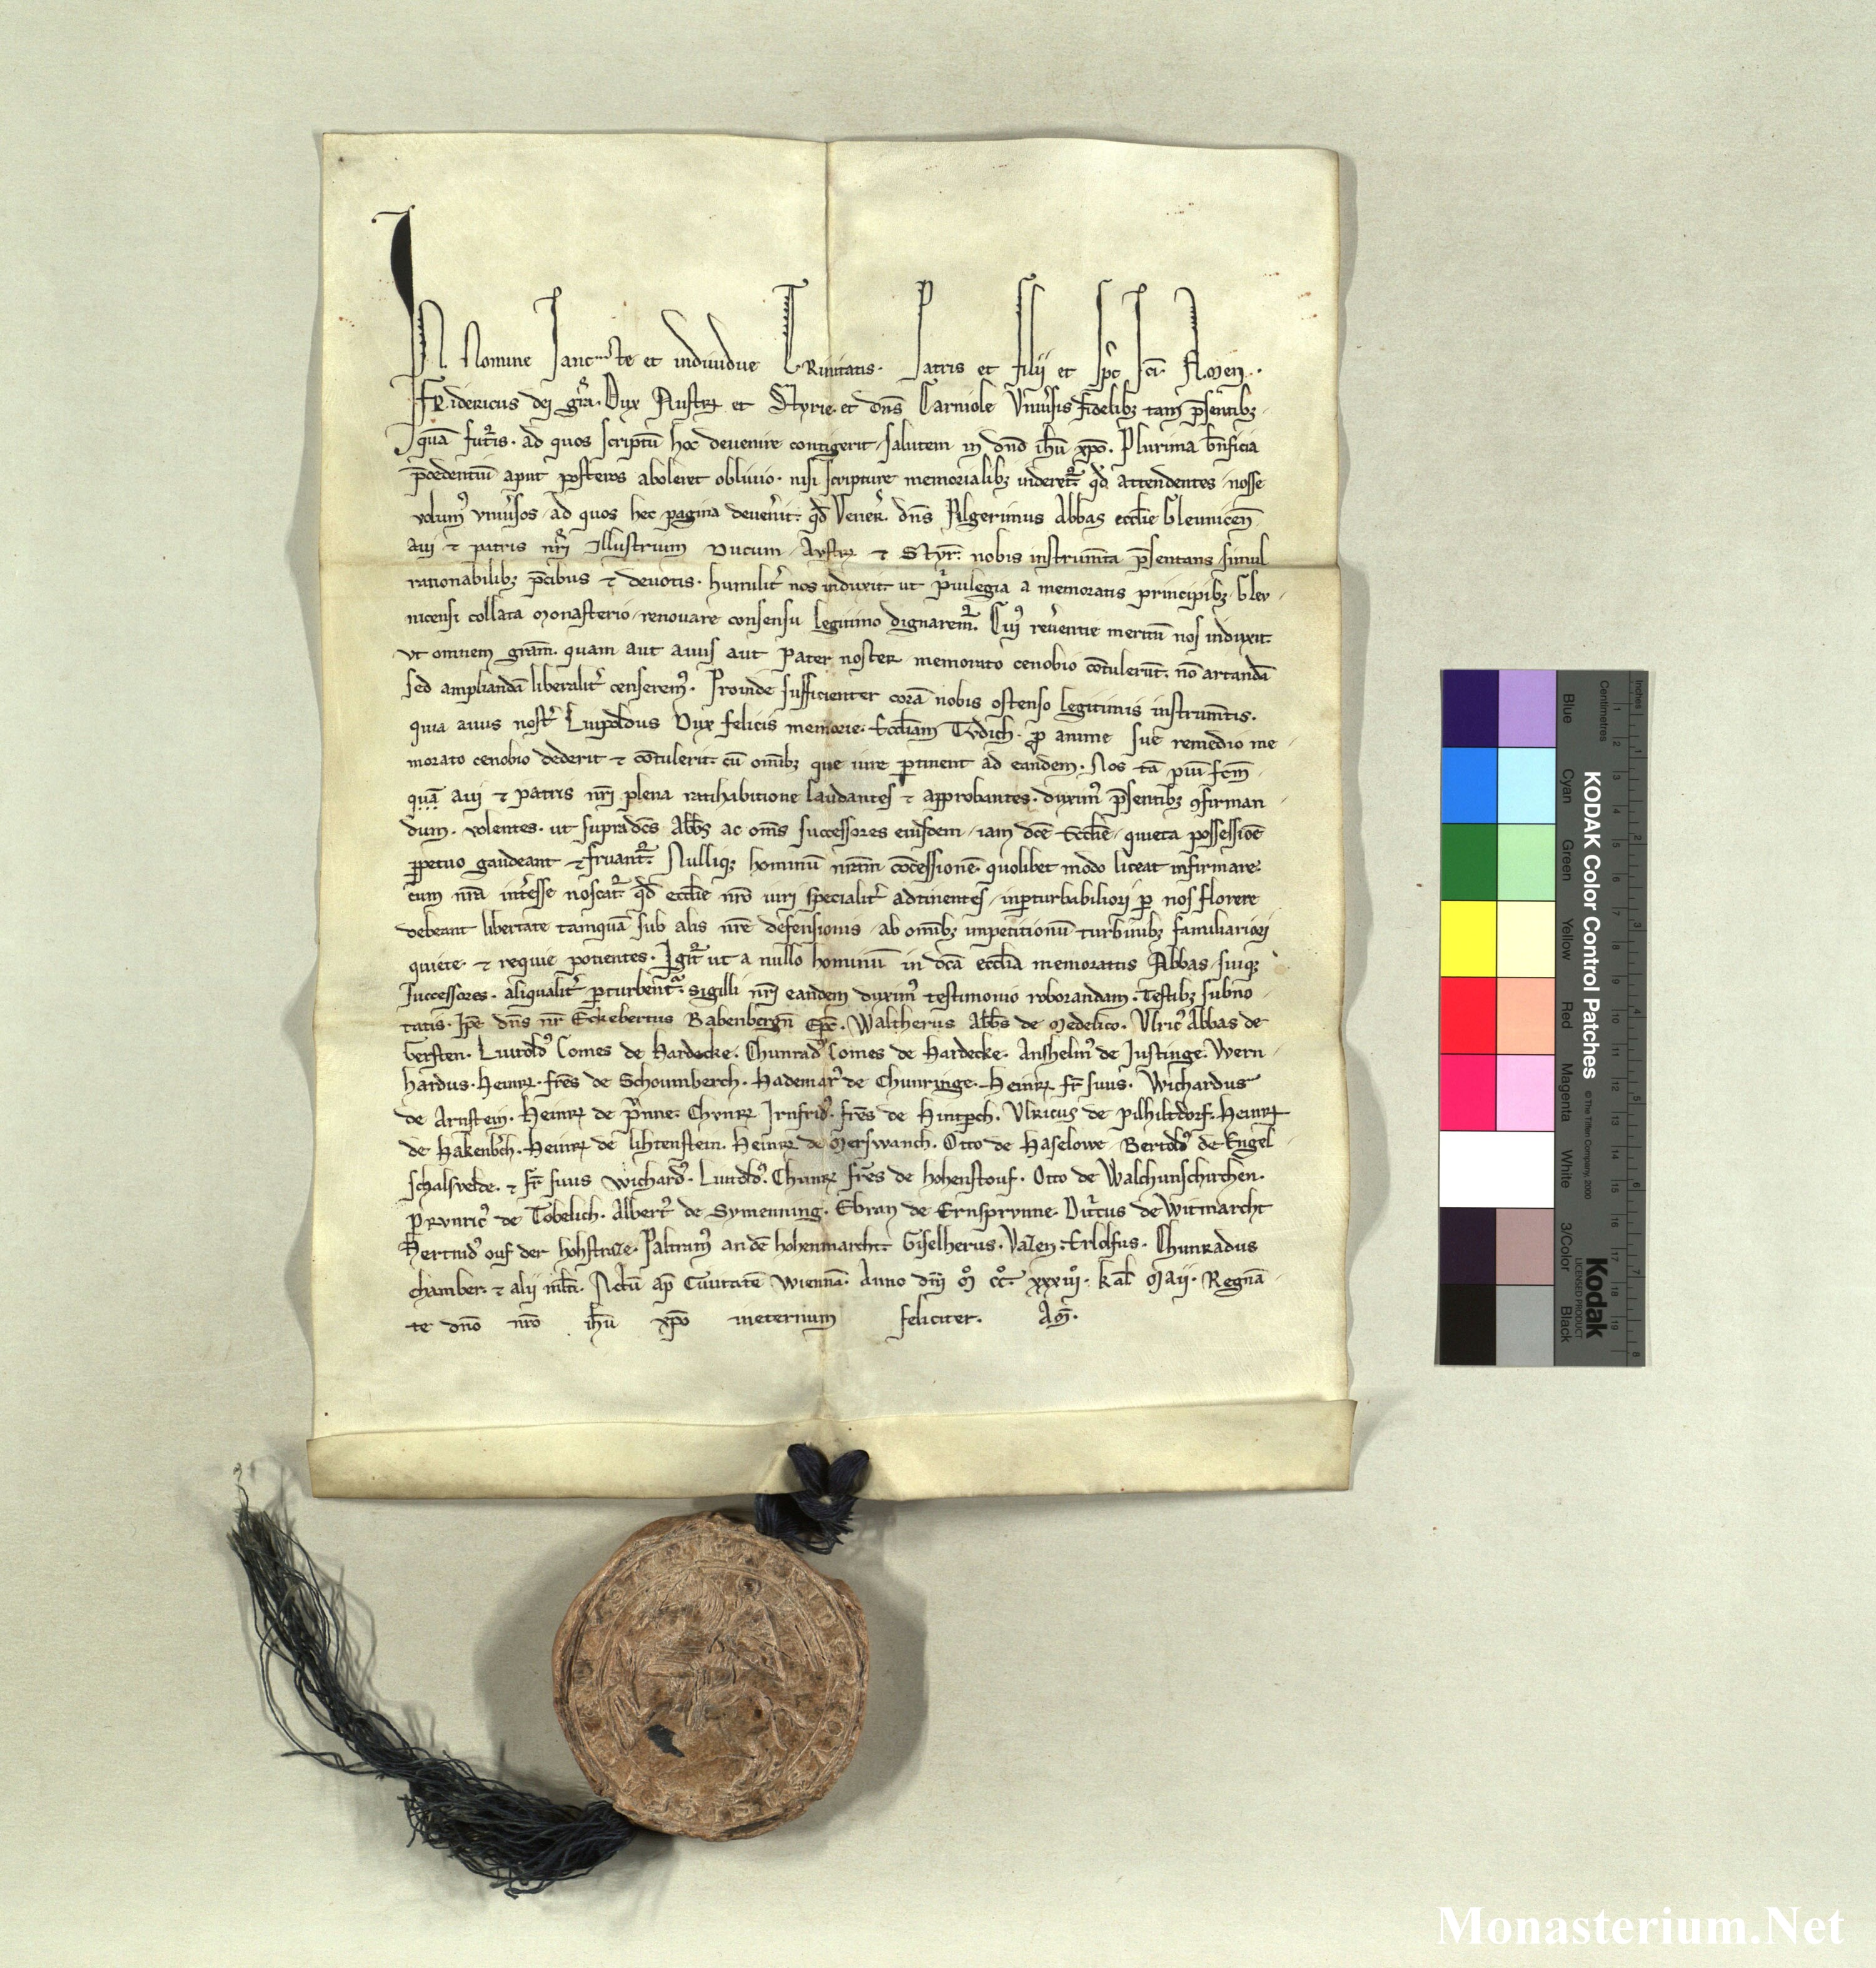 IN Nomine Sancte et indiuidue TRinitatis. Patris et filij et spc sci. Amen..
FRidericus dei gra. Dux Austrie et Styrie. et dns Carniole Vniuersis fidelibz tam psentibz
quā futuris. ad quos scriptū hoc deuenire contigerit. salutem in dno ihu xpo. Plurima bnficia
pcedentiū aput posteros aboleret obliuio. nisi scripture memorialibz uideretur. qd attendentes nosse
volumꝰ vniuersos ad quos hec pagina deuenerit. qd Vener. dns Algerimus Abbas ecclie Gleunicen
aui ⁊ patris nri Illustrium Ducum Austrie ⁊ Styr. nobis instrumta psentans simul
rationabilibz pcibus ⁊ deuotis. humilit nos induxit. ut priuilegia a memoratis principibz Gleu
nicensi collata monasterio renouare consensu legitimo dignaremur. Cuiꝰ reuerentie meritū nos induxit
vt omnem gram. quam aut auus aut Pater noster memorato cenobio cōtulerūt. nō artandā
sed ampliandā liberalit censeremꝰ. Proinde sufficienter corā nobis ostenso legitimis instrumtis.
quia auus nostr Lupoldus Dux felicis memorie. Eccliam Tvdich. pro anime sue remedio me
morato cenobio dederit ⁊ cōtulerit. cū omibz que iure ptinent ad eandem. Nos tā piū fcm
quā aui ⁊ patris nri plena ratihabitione laudantes ⁊ approbantes. duximꝰ psentibz ꝯfirman
dum. volentes. ut supradcs Abbs ac oms successores eiusdem iam dce Ecclie quieta possessiōe
ppetuo gaudeant ⁊ fruantur. Nulliqz hominū nram cōcessionē quolibet modo liceat infirmare.
cum nra interesse noscatur. qd ecclie nro iuri specialit adtinentes inpturbabiliori p nos florere
debeant libertate tamquā sub alis nre defensionis ab omibz impetitionū turbinibz familiariori
quiete ⁊ requie potientes. Igitur ut a nullo hominū in dcā ecclia memoratus Abbas suiqz
successores. aliqualit pturbentur. sigilli nri eandem duximꝰ testimonio roborandam. Testibz subno
tatis. Ipe dns nr Eckebertus Babenbergn Epc. Waltherus Abbs de Medelico. Vlricꝰ Abbas de
Gersten. Liutoldꝰ Comes de Hardecke. Chunradꝰ Comes de Hardecke. Anshelmꝰ de Justinge. Wern
hardus. Heinr. frēs de Schoumberch. Hademarꝰ de Chunringe. Heinr fr suus. Wichardus
de Arnstein. Heinr de prnne. Chvnr Irnfridꝰ. frēs de Hintpch. Vlricus de pilhiltdorf. Heinr
de Hakenbch. Heinr de lihtenstein. Heinr de Merswanch. Otto de Haselowe Bertoldꝰ de Engel
schalsvelde. ⁊ fr suus wichardꝰ. Liutoldꝰ. Chunr frēs de hohenstouf. Otto de Walchunschirchen.
Prvnricꝰ de Tobelich. Albertꝰ de Symenning. Ebran de Ernsprvnne. Ditricus de Witmarcht
Hertnidꝰ ouf der hohstraze. Paltramꝰ an dē hohenmarcht. Giselherus. Vaizen. Erlolfus. Chunradus
chamber. ⁊ alij mlti. Actū ap Ciuitatē Wiennā. Anno dni mꝰ ccꝰ. xxxiijꝰ. kal Maij. Regnā
te dno nro ihu xpo ineternum feliciter. Am.
Inches
Centimetres
KODAK Color Control Patches
© The Tiffen Company, 2000
Kodak
LICENSED PRODUCT
Blue
Cyan
Green
Yellow
Red
Magenta
White
3/Color
Black
Monasterium.Net